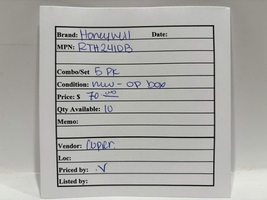 Brand: Honeywell Date:
MPN: RTH2410B
Combo/Set 5 PK
Condition: new - op box
Price: $ 70.00
Qty Available: 10
Memo:
Vendor: Coper
Loc:
Priced by: V
Listed by: